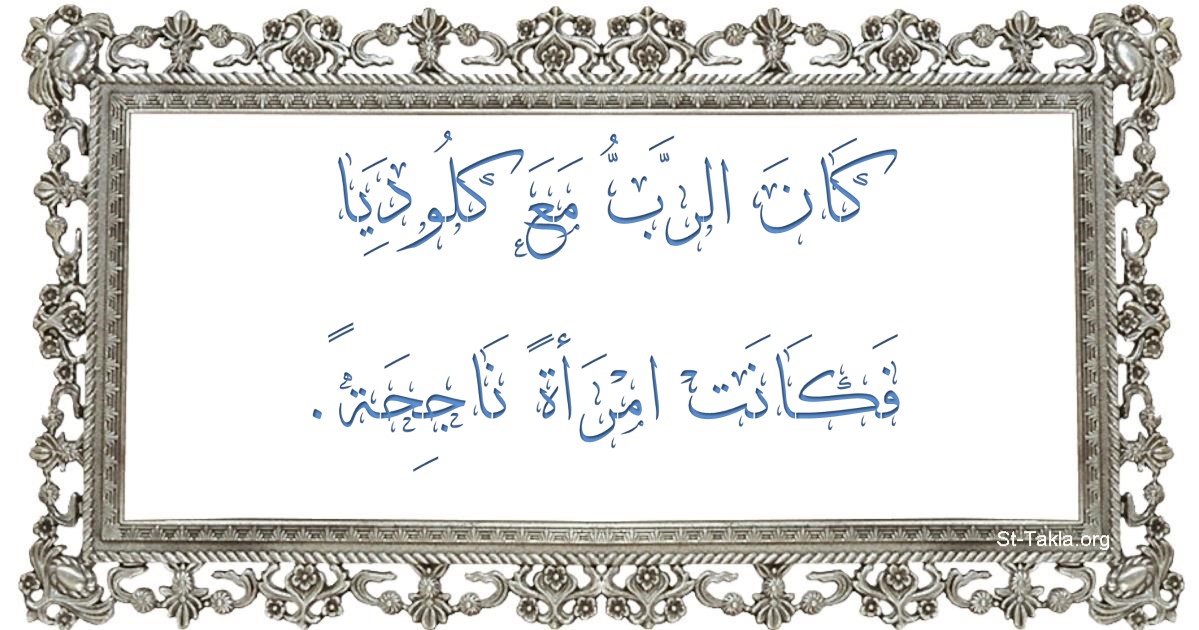 كَانَ الرَّبُّ مَعَ كلُودِيَا
فَكَانَت امْرَأَةً نَاجِحَةً.
St-Takla.org